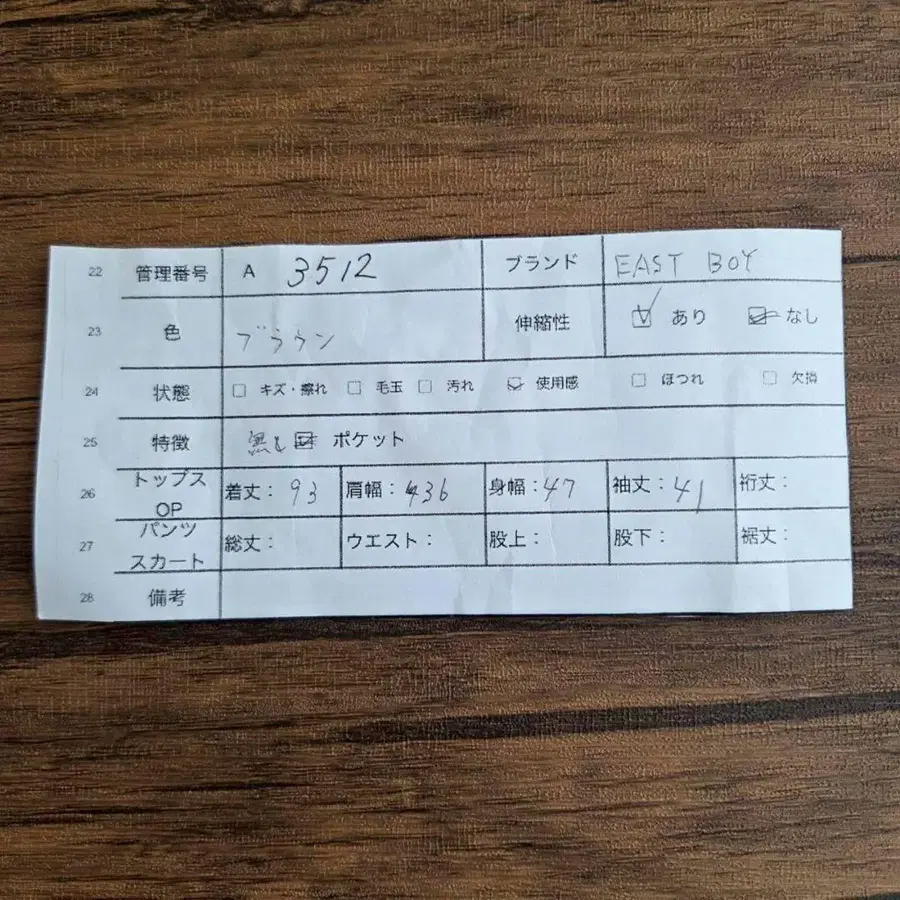 22 管理番号 A 3512 ブランド EAST BOY
23 色 ブラウン 伸縮性 ☑ あり ☑ なし
24 状態 ☐ キズ・擦れ ☐ 毛玉 ☐ 汚れ ☑ 使用感 ☐ ほつれ ☐ 欠損
25 特徴 無し ☑ ポケット
26 トップス OP 着丈：93 肩幅：36 身幅：47 袖丈：41 裄丈：
27 パンツ スカート 総丈： ウエスト： 股上： 股下： 裾丈：
28 備考